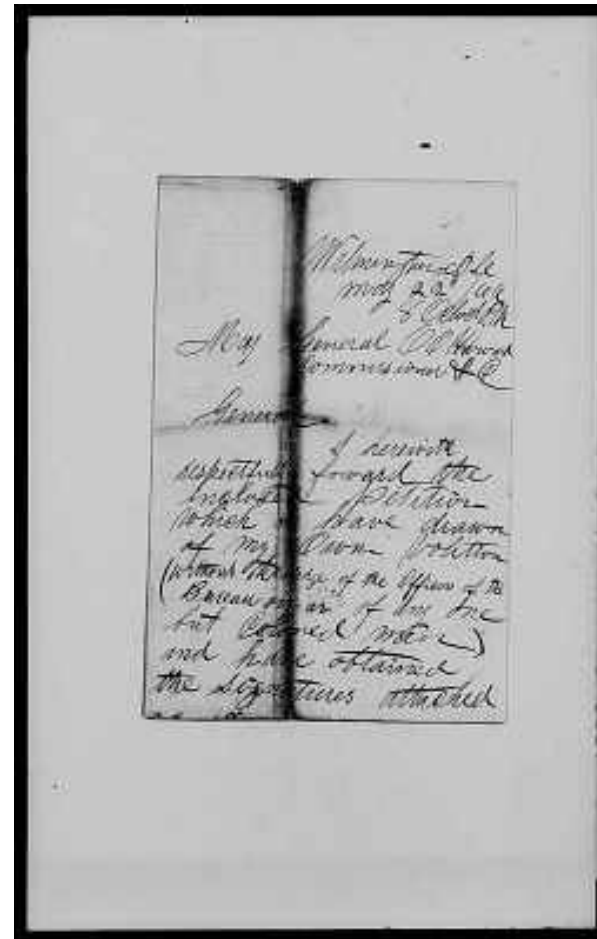 Wilmington
May 22
Maj General O O Howard
Commissioner &C
General
I herewith
respectfully forward the
petition
which I have drawn
of my own volition
(without the of the Officers of the
Bureau or of any One
but Colored men)
and have obtained
the signatures attached